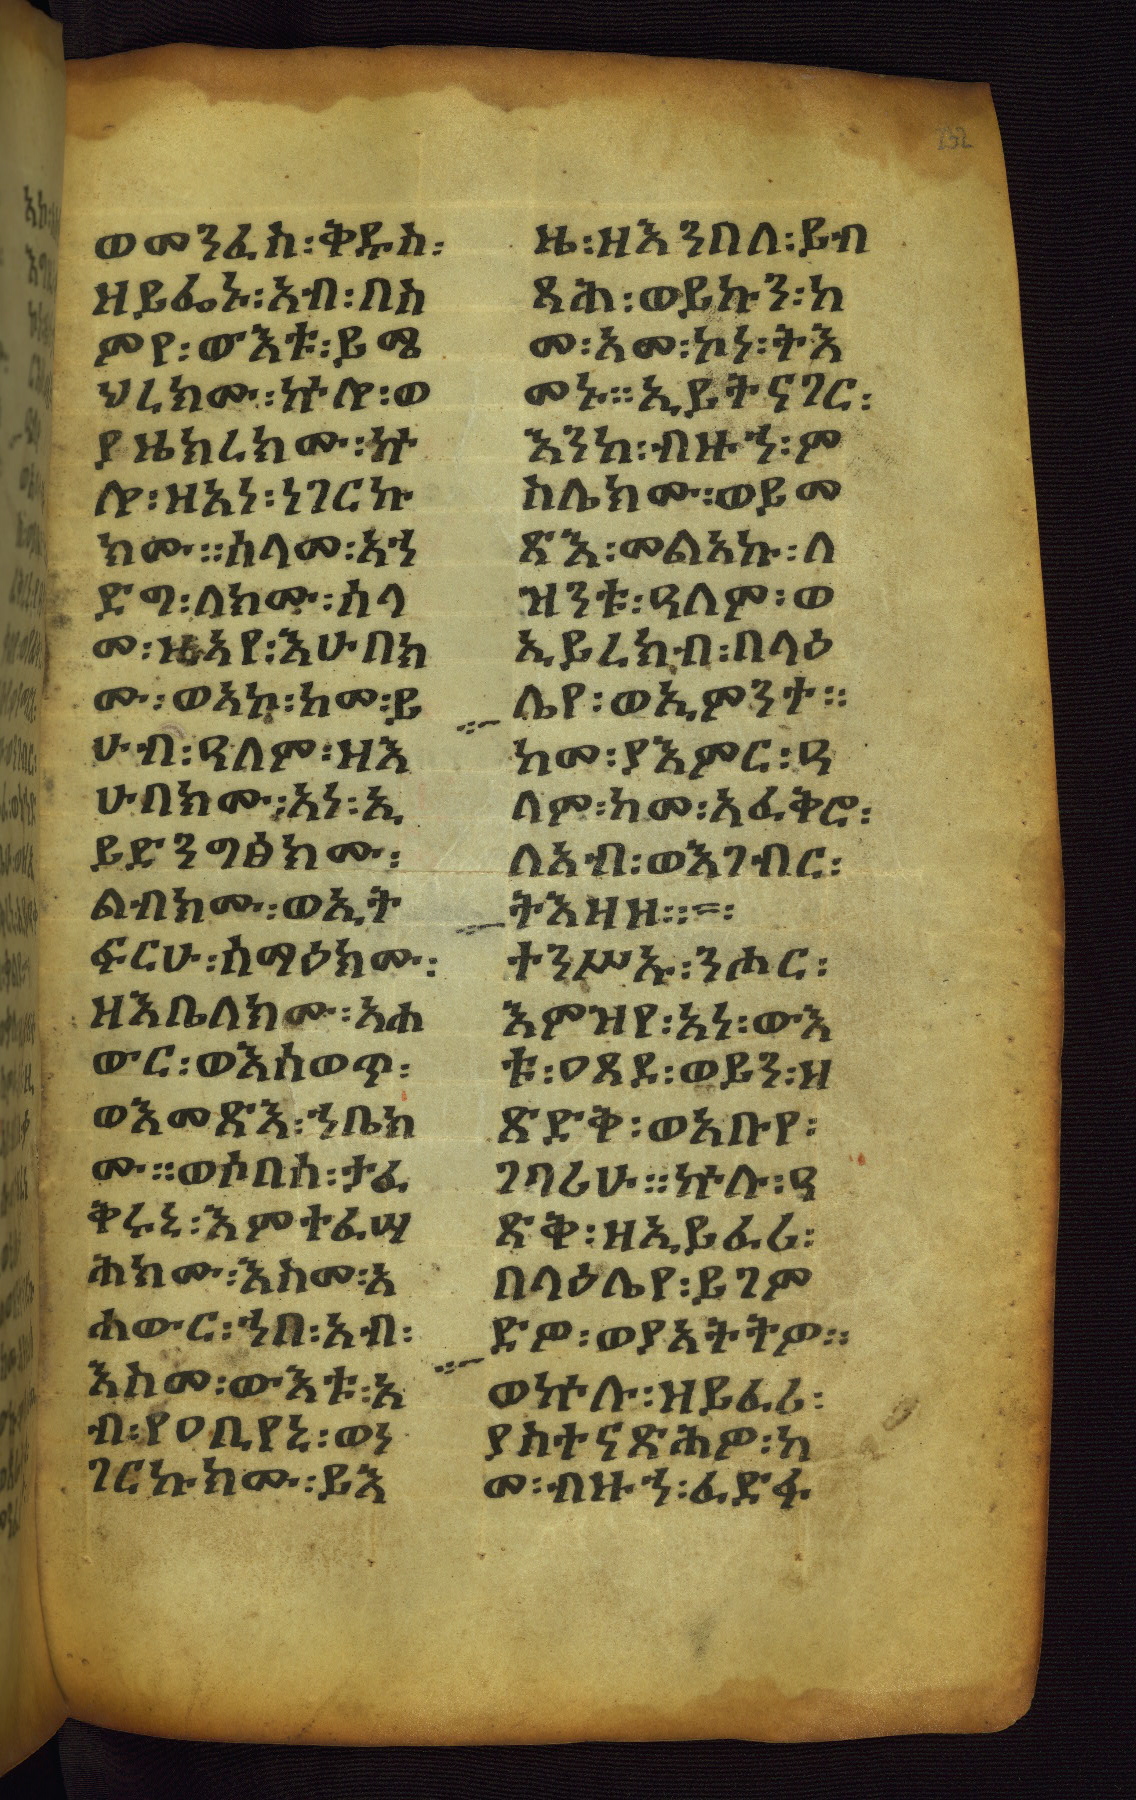 ወመንፈስ፡ቅዱስ፡
ዘይፌኑ፡አብ፡በስ
ምየ፡ውእቱ፡ይሜ
ህረክሙ፡ኵሎ፡ወ
ያዜክረክሙ፡ኵ
ሎ፡ዘአነ፡ነገርኩ
ክሙ።ሰላመ፡አኀ
ድግ፡ለክሙ፡ሰላ
መ፡ዚአየ፡እሁበክ
ሙ፡ወአኮ፡ከመ፡ይ
ሁብ፡ዓለም፡ዘእ
ሁበክሙ፡አነ፡ኢ
ይድንግፅክሙ፡
ልብክሙ፡ወኢት
ፍርሁ፡ሰማዕክሙ፡
ዘእቤለክሙ፡አሐ
ውር፡ወእሰወጥ፡
ወእመጽእ፡ኀቤክ
ሙ።ወሶበሰ፡ታፈ
ቅሩኒ፡እምተፈሣ
ሕክሙ፡እስመ፡አ
ሐውር፡ኀበ፡አብ፡
እስመ፡ውእቱ፡አ
ብ፡የዐቢየኒ፡ወነ
ገርኩክሙ፡ይእ
ዜ፡ዘእንበለ፡ይብ
ጻሕ፡ወይኩን፡ከ
መ፡አመ፡ኮነ፡ትእ
መኑ።ኢይትናገር፡
እንከ፡ብዙኀ፡ም
ስሌክሙ፡ወይመ
ጽእ፡መልአኩ፡ለ
ዝንቱ፡ዓለም፡ወ
ኢይረክብ፡በላዕ
ሌየ፡ወኢምንተ።
ከመ፡ያእምር፡ዓ
ለም፡ከመ፡አፈቅሮ፡
ለአብ፡ወእገብር፡
ትእዛዘ።=፡
ተንሥኡ፡ንሑር፡
እምዝየ፡አነ፡ውእ
ቱ፡ዐጸደ፡ወይን፡ዘ
ጽድቅ፡ወአቡየ፡
ገባሪሁ።ኵሉ፡ዓ
ጽቅ፡ዘኢይፈሪ፡
በላዕሌየ፡ይገም
ድዎ፡ወያአትትዎ።
ወኵሉ፡ዘይፈሪ፡
ያስተናጽሕዎ፡ከ
መ፡ብዙኀ፡ፈድፋ